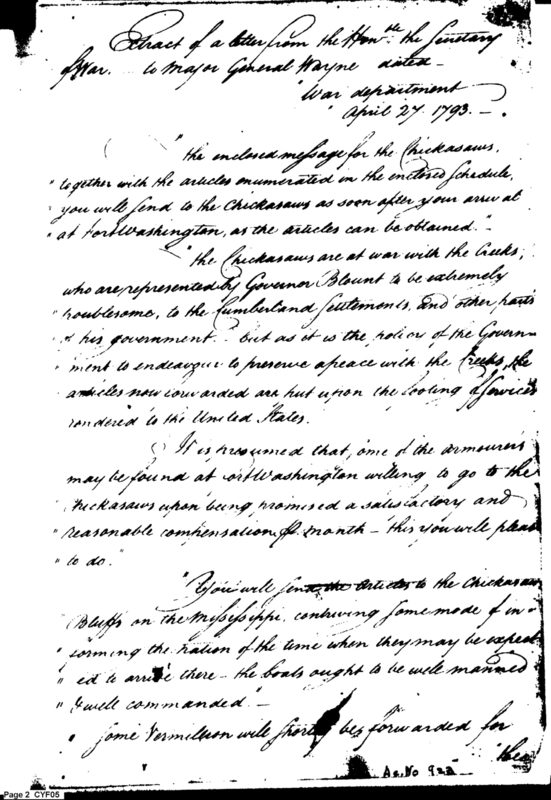 Extract of a letter from the Honble. the Secretary
of War. to Major General Wayne dated —
"War department
April 27. 1793. —
"The enclosed message for the Chickasaws,
" together with the articles enumerated in the enclosed schedule,
" you will send to the Chickasaws as soon after your arrival
" at Fort Washington, as the articles can be obtained."
"The Chickasaws are at war with the Creeks,
who are represented by Governor Blount to be extremely
troublesome, to the Cumberland Settlements, and other parts
of his government. but as it is the policy of the Govern-
ment to endeavour to preserve a peace with the Creeks, the
articles now forwarded are put upon the footing of Services
rendered to the United States.
It is presumed that, one of the armourers
may be found at Fort Washington willing to go to the
Chickasaws upon being promised a satisfactory and
" reasonable compensation month — this you will please
" to do."
"You will send the articles to the Chickasaw
Bluffs on the Mississippi, contriving some mode of in-
" forming the nation of the time when they may be expect
" ed to arrive there — the boats ought to be well manned
" & well commanded." —
" Some Vermilion will shortly be forwarded for
Ac. No
Page 2 CYF05